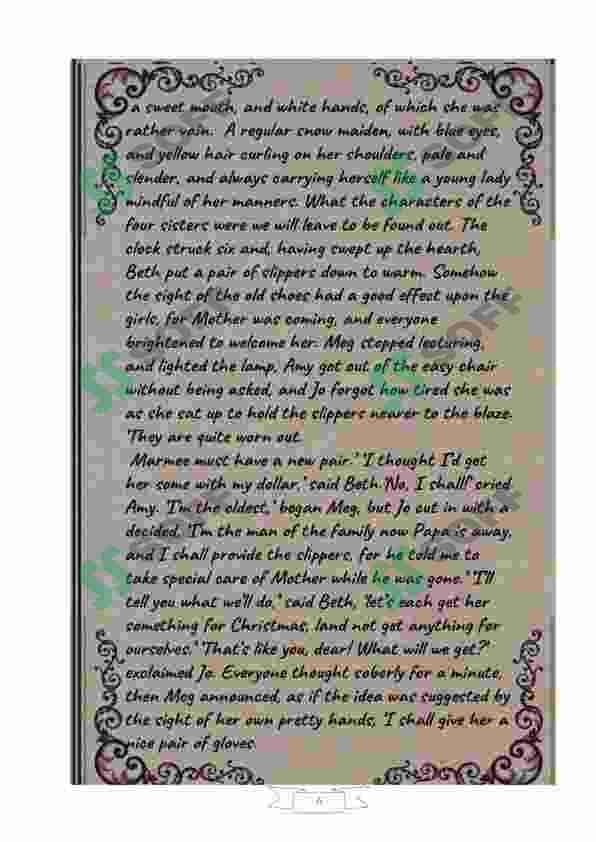 a sweet mouth, and white hands, of which she was
rather vain. A regular snow maiden, with blue eyes,
and yellow hair curling on her shoulders, pale and
slender, and always carrying herself like a young lady
mindful of her manners. What the characters of the
four sisters were we will leave to be found out. The
clock struck six and, having swept up the hearth,
Beth put a pair of slippers down to warm. Somehow
the sight of the old shoes had a good effect upon the
girls, for Mother was coming, and everyone
brightened to welcome her. Meg stopped lecturing,
and lighted the lamp, Amy got out of the easy chair
without being asked, and Jo forgot how tired she was
as she sat up to hold the slippers nearer to the blaze.
'They are quite worn out.
Marmee must have a new pair.' 'I thought I'd get
her some with my dollar,' said Beth.'No, I shall!' cried
Amy. 'I'm the oldest,' began Meg, but Jo cut in with a
decided, 'I'm the man of the family now Papa is away,
and I shall provide the slippers, for he told me to
take special care of Mother while he was gone.' 'I'll
tell you what we'll do,' said Beth, 'let's each get her
something for Christmas, land not get anything for
ourselves.' 'That's like you, dear! What will we get?'
exclaimed Jo. Everyone thought soberly for a minute,
then Meg announced, as if the idea was suggested by
the sight of her own pretty hands, 'I shall give her a
nice pair of gloves.